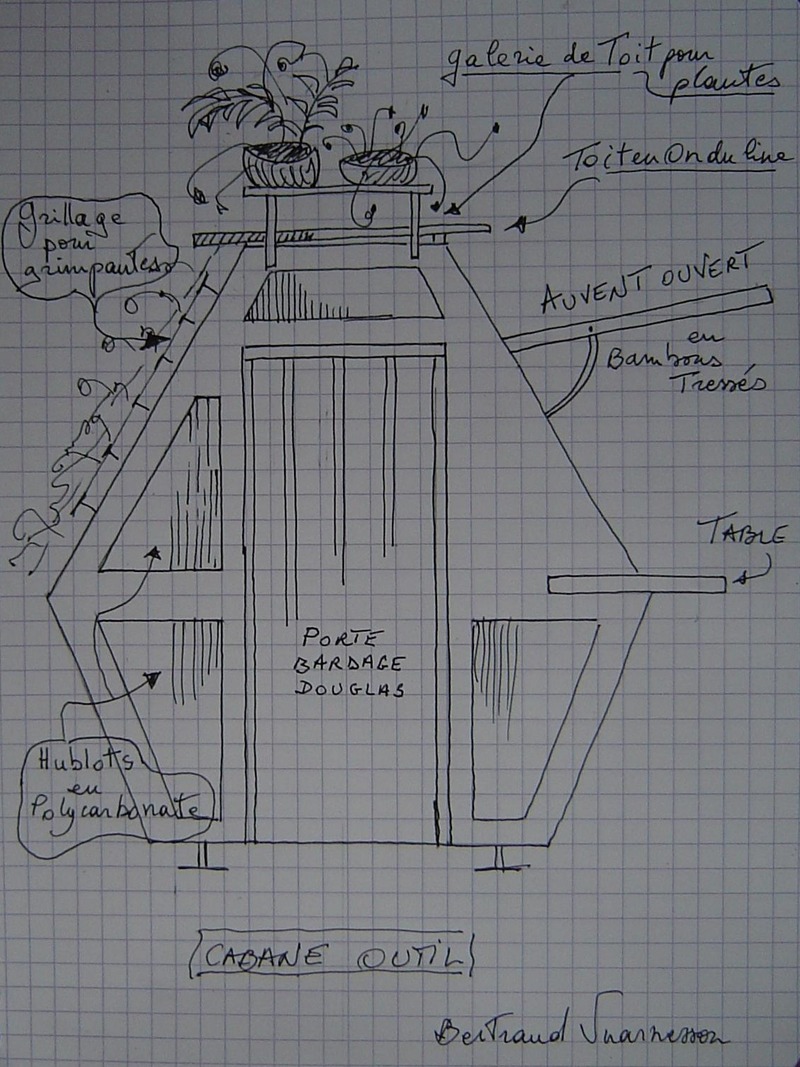 galerie de Toit pour
plantes
Toit en Onduline
Grillage
pour
grimpantes
AUVENT OUVERT
en
Bambous
Tressés
TABLE
PORTE
BARDAGE
DOUGLAS
Hublots
en
Polycarbonate
CABANE OUTIL
Bertrand